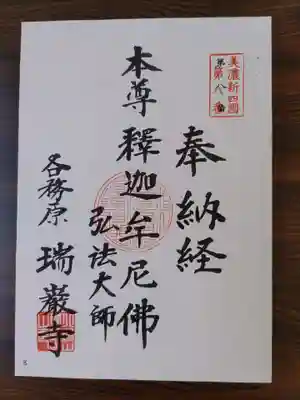 美濃新四國
第八番
奉納経
本尊釋迦牟尼佛
弘法大師
各務原 瑞巖寺